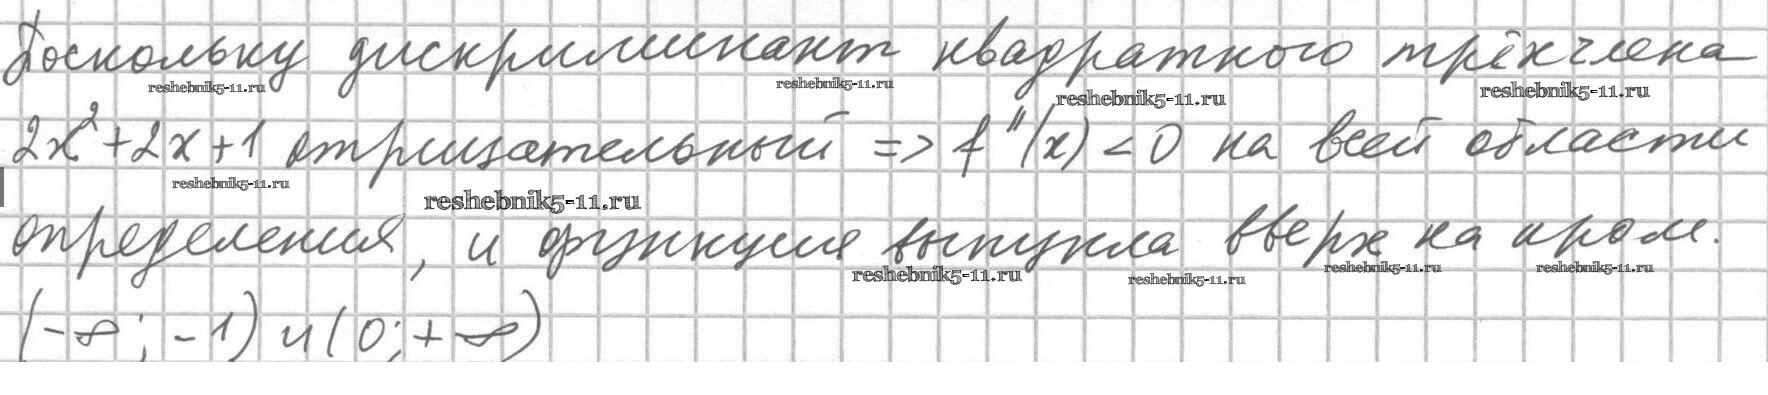 Поскольку дискриминант квадратного трёхчлена
reshebnik5-11.ru reshebnik5-11.ru reshebnik5-11.ru reshebnik5-11.ru
2x²+2x+1 отрицательный => f''(x) < 0 на всей области
reshebnik5-11.ru reshebnik5-11.ru
определения, и функция выпукла вверх на пром.
reshebnik5-11.ru reshebnik5-11.ru reshebnik5-11.ru reshebnik5-11.ru
(-∞; -1) и (0; +∞)